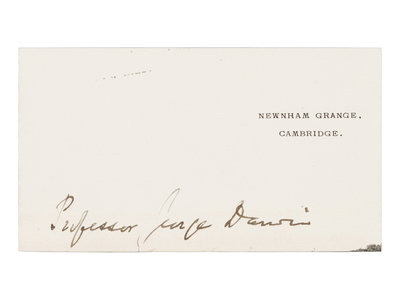 NEWNHAM GRANGE,
CAMBRIDGE.
Professor George Darwin